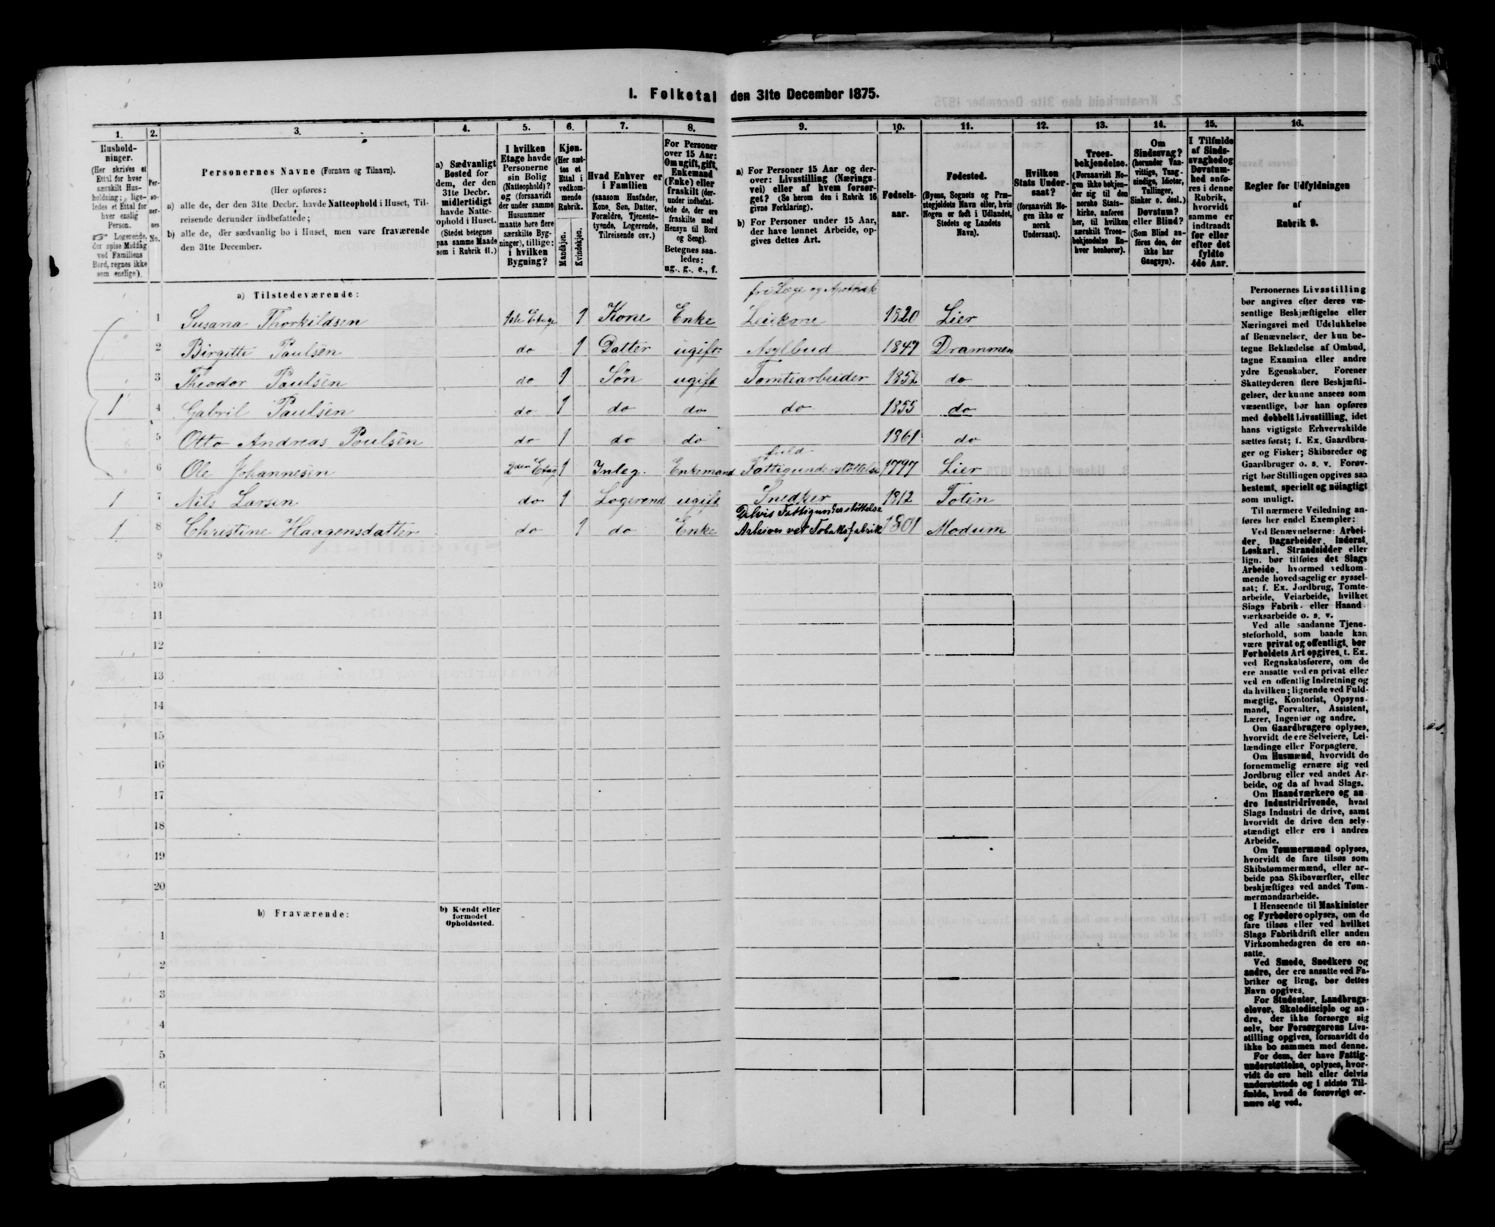 1. Folketal den 31te December 1875.
1. 2. 3. 4. 5. 6. 7. 8. 9. 10. 11. 12. 13. 14. 15. 16.
Hushold-
ninger.
(Her skrives et
Ettal for hver
særskilt Hus-
holdning; lige-
ledes et Ettal for
hver enslig
Person.
Logerende,
der spise Middag
ved Familiens
Bord, regnes ikke
som enslige).
Personernes Navne (Fornavn og Tilnavn).
(Her opføres:
a) alle de, der den 31te Decbr. havde Natteophold i Huset, Til-
reisende derunder indbefattede;
b) alle de, der sædvanlig bo i Huset, men vare fraværende
den 31te December.
a) Sædvanligt
Bosted for
dem, der den
31te Decbr.
midlertidigt
havde Natte-
ophold i Huset.
(Stedet betegnes
paa samme Maade
som i Rubrik 11.)
I hvilken
Etage havde
Personerne
sin Bolig
(Natteophold)?
og (forsaavidt
der under samme
Husnummer
maatte høre flere
særskilte Byg-
ninger), tillige:
i hvilken
Bygning?
Kjøn.
(Her sæt-
tes et
Ettal i
vedkom-
mende
Rubrik.
Mandkjøn.
Kvindekjøn.
Hvad Enhver er
i Familien
(saasom Husfader,
Kone, Søn, Datter,
Forældre, Tjeneste-
tyende, Logerende,
Tilreisende osv.)
For Personer
over 15 Aar:
Om ugift, gift,
Enkemand
(Enke) eller
fraskilt (der-
under indbefat-
tede de, der ere
fraskilte med
Hensyn til Bord
og Seng).
Betegnes saa-
ledes:
ug., g., e., f.
a) For Personer 15 Aar og der-
over: Livsstilling (Nærings-
vei) eller af hvem forsør-
get? (Se herom den i Rubrik 16
givne Forklaring).
b) For Personer under 15 Aar,
der have lønnet Arbeide, op-
gives dettes Art.
Fødsels-
aar.
Fødested.
(Byens, Sognets og Præ-
stegjeldets Navn eller, hvis
Nogen er født i Udlandet,
Stedets og Landets
Navn).
Hvilken
Stats Under-
saat?
(forsaavidt No-
gen ikke er
norsk
Undersaat).
Troes-
bekjendelse.
(Forsaavidt No-
gen ikke bekjen-
der sig til den
norske Stats-
kirke, anføres
her, til hvilken
særskilt Troes-
bekjendelse En-
hver henhører).
Om
Sindssvag?
(herunder Van-
vittige, Tung-
sindige, Idioter,
Tullinger,
Sinker o. desl.)
Døvstum?
eller Blind?
(Som Blind an-
føres den, der
ikke har
Gangsyn).
I Tilfælde
af Sinds-
svaghed og
Døvstum-
hed anfø-
res i denne
Rubrik,
hvorvidt
samme er
indtraadt
før eller
efter det
fyldte
4de Aar.
Regler for Udfyldningen
af
Rubrik 9.
a) Tilstedeværende:
fri Læge og Apothek
1 Susana Thorkildsen 1ste Etage 1 Kone Enke Leiekone 1820 Lier
2 Birgitte Paulsen do 1 Datter ugift Asylbud 1847 Drammen
3 Theodor Paulsen do 1 Søn ugift Tomtearbeider 1852 do
1 4 Gabril Paulsen do 1 do do do 1855 do
5 Otto Andreas Poulsen do 1 do do 1861 do
fuld
6 Ole Johannesen 2den Etage 1 Enkemand Fattigunderstøttelse 1797 Lier
1 7 Nils Larsen do 1 Logerend ugift Snedker 1812 Toten
Delvis Fattigunderstøttelse
1 8 Christine Haagensdatter do 1 do Enke ved Tobaksfabrik 1801 Modum
9
10
11
12
13
14
15
16
17
18
19
20
b) Fraværende:
b) Kjendt eller
formodet
Opholdssted.
1
2
3
4
5
6
Personernes Livsstilling
bør angives efter deres væ-
sentlige Beskjæftigelse eller
Næringsvei med Udelukkelse
af Benævnelser, der kun be-
tegne Beklædelse af Ombud,
tagne Examina eller andre
ydre Egenskaber. Forener
Skatteyderen flere Beskjæfti-
gelser, der kunne ansees som
væsentlige, bør han opføres
med dobbelt Livsstilling, idet
hans vigtigste Erhvervskilde
sættes først; f. Ex. Gaardbru-
ger og Fisker; Skibsreder og
Gaardbruger o. s. v. Forøv-
rigt bør Stillingen opgives saa
bestemt, specielt og nøiagtigt
som muligt.
Til nærmere Veiledning an-
føres her endel Exempler:
Ved Benævnelserne: Arbei-
der, Dagarbeider, Inderst,
Løskarl, Strandsidder eller
lign. bør tilføies det Slags
Arbeide, hvormed vedkom-
mende hovedsagelig er syssel-
sat; f. Ex. Jordbrug, Tomte-
arbeide, Veiarbeide, hvilket
Slags Fabrik- eller Haand-
værksarbeide o. s. v.
Ved alle saadanne Tjene-
steforhold, som baade kan
være privat og offentligt, bør
Forholdets Art opgives, t. Ex.
ved Regnskabsførere, om de
ere ansatte ved en privat eller
ved en offentlig Indretning og
da hvilken; lignende ved Fuld-
mægtig, Kontorist, Opsyns-
mand, Forvalter, Assistent,
Lærer, Ingeniør og andre.
Om Gaardbrugere oplyses,
hvorvidt de ere Selveiere, Lei-
lændinge eller Forpagtere.
Om Husmænd, hvorvidt de
fornemmelig ernære sig ved
Jordbrug eller ved andet Ar-
beide, og da af hvad Slags.
Om Haandværkere og an-
dre Industridrivende, hvad
Slags Industri de drive, samt
hvorvidt de drive den selv-
stændigt eller ere i andres
Arbeide.
Om Tømmermænd oplyses,
hvorvidt de fare tilsøs som
Skibstømmermænd, eller ar-
beide paa Skibsværfter, eller
beskjæftiges ved andet Tøm-
mermandsarbeide.
I Henseende til Maskinister
og Fyrbødere oplyses, om de
fare tilsøs eller ved hvilket
Slags Fabrikdrift eller anden
Virksomhedsgren de ere an-
satte.
Ved Smede, Snedkere og
andre, der ere ansatte ved Fa-
briker og Brug, bør dettes
Navn opgives.
For Studenter, Landbrugs-
elever, Skoledisciple og an-
dre, der ikke forsørge sig
selv, bør Forsørgerens Livs-
stilling opgives, forsaavidt de
ikke bo sammen med denne.
For dem, der have Fattig-
understøttelse, oplyses, hvor-
vidt de ere helt eller delvis
understøttede og i sidste Til-
fælde, hvad de forøvrigt er-
nære sig ved.